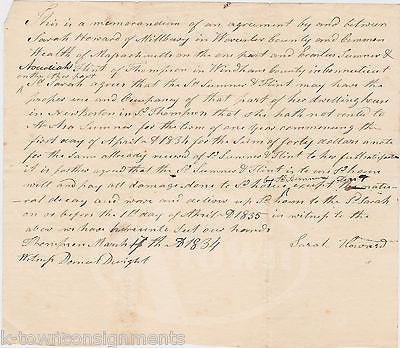 This is a memorandum of an agreement by and between
Sarah Howard of Millbury in Worcester County and Common
Wealth of Massachusetts on the one part and Sumner &
Flint of Thompson in Windham County in Connecticut
on the other part
Sd Sarah agrees that the Sd Sumner & Flint may have the
use and of that part of her dwelling house
in New Boston in Sd Thompson that she hath not rented to
Sumner for the term of one year commencing the
first day of April AD 1834 for the Sum of forty dollars
for the same already received of Sd Sumner & Flint to her full satisfaction
it is further agreed that the Sd Sumner & Flint is to use Sd house
well and pay all damage done to Sd house except
ral decay and ware and deliver up Sd house to the Sd Sarah
on or before the 1st day of April AD 1835 in witness to the
above we have hereunto set our hands
Thompson March th AD 1834
Sarah Howard
Witness Dwight
k-townconsignments